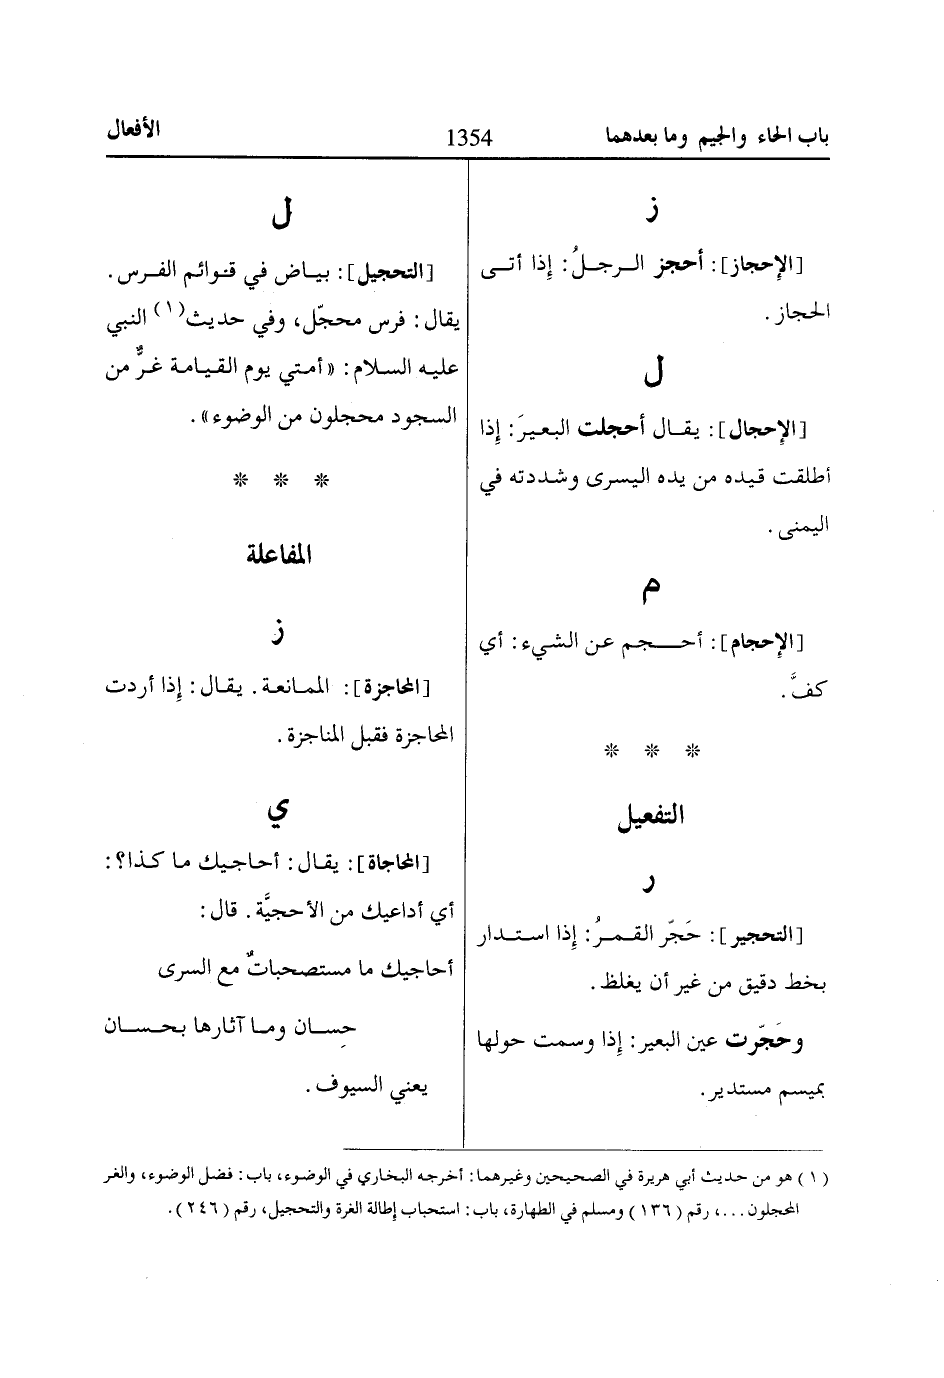 باب الحاء والجيم وما بعدهما
1354
الأفعال
ز
[الإحجاز]: أحجز الرجلُ: إذا أتى
الحجاز.
ل
[الإحجال]: يقال أحجلت البعيرَ: إذا
أطلقت قيده من يده اليسرى وشددته في
اليمنى.
م
[الإحجام]: أحجم عن الشيء: أي
كفَّ.
* * *
التفعيل
ر
[التحجير]: حَجّر القمرُ: إذا استدار
بخط دقيق من غير أن يغلظ.
وحَجّرت عين البعير: إذا وسمت حولها
بميسم مستدير.
ل
[التحجيل]: بياض في قوائم الفرس.
يقال: فرس محجّل، وفي حديث(١) النبي
عليه السلام: «أمتي يوم القيامة غرٌّ من
السجود محجلون من الوضوء».
* * *
المفاعلة
ز
[المحاجزة]: الممانعة. يقال: إذا أردت
المحاجزة فقبل المناجزة.
ي
[المحاجاة]: يقال: أحاجيك ما كذا؟:
أي أداعيك من الأحجيَّة. قال:
أحاجيك ما مستصحباتٌ مع السرى
حِسان وما آثارها بحسان
يعني السيوف.
(١) هو من حديث أبي هريرة في الصحيحين وغيرهما: أخرجه البخاري في الوضوء، باب: فضل الوضوء، والغر
المحجلون ...، رقم (١٣٦) ومسلم في الطهارة، باب: استحباب إطالة الغرة والتحجيل، رقم (٢٤٦).